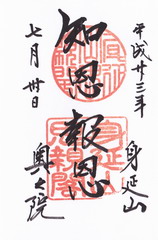 平成廿三年
身延山
知恩報恩
七月卅日
奥之院